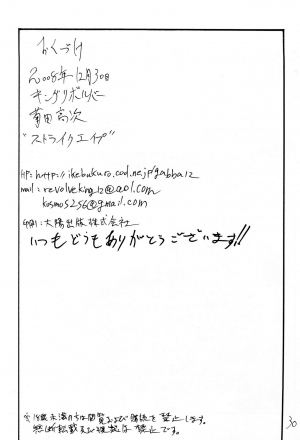 おくづけ
2008年12月30日
キングリボルバー
菊田高次
"ストライクエイプ"
HP: http://ikebukuro.cool.ne.jp/gabba12
mail: revolveking12@aol.com
kosmos256@gmail.com
印刷:大陽出版株式会社
いつもどうもありがとうございます!!
※18歳未満の方は閲覧および購読を禁止します。
無断転載及び複製は禁止です。
30